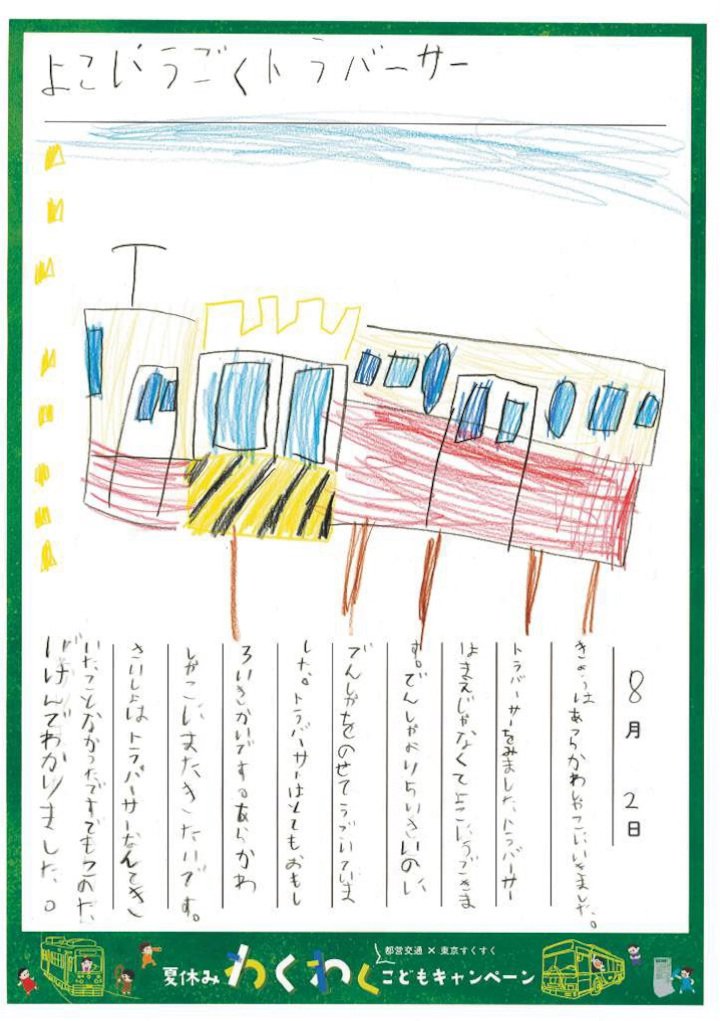 よこにうごくトラバーサー
8月2日
きょうはあらかわしゃこにいきました。
トラバーサーをみました、トラバーサー
はまえじゃなくてよこにうごきま
す。でんしゃよりちいさいのに、
でんしゃをのせてうごいていま
した。トラバーサーはとてもおもし
ろいきかいです。あらかわ
しゃこにまたきたいです。
さいしょはトラバーサーなんてきい
いたことなかったですでもこのた
けんでわかりました。
都営交通×東京すくすく
夏休みわくわくこどもキャンペーン